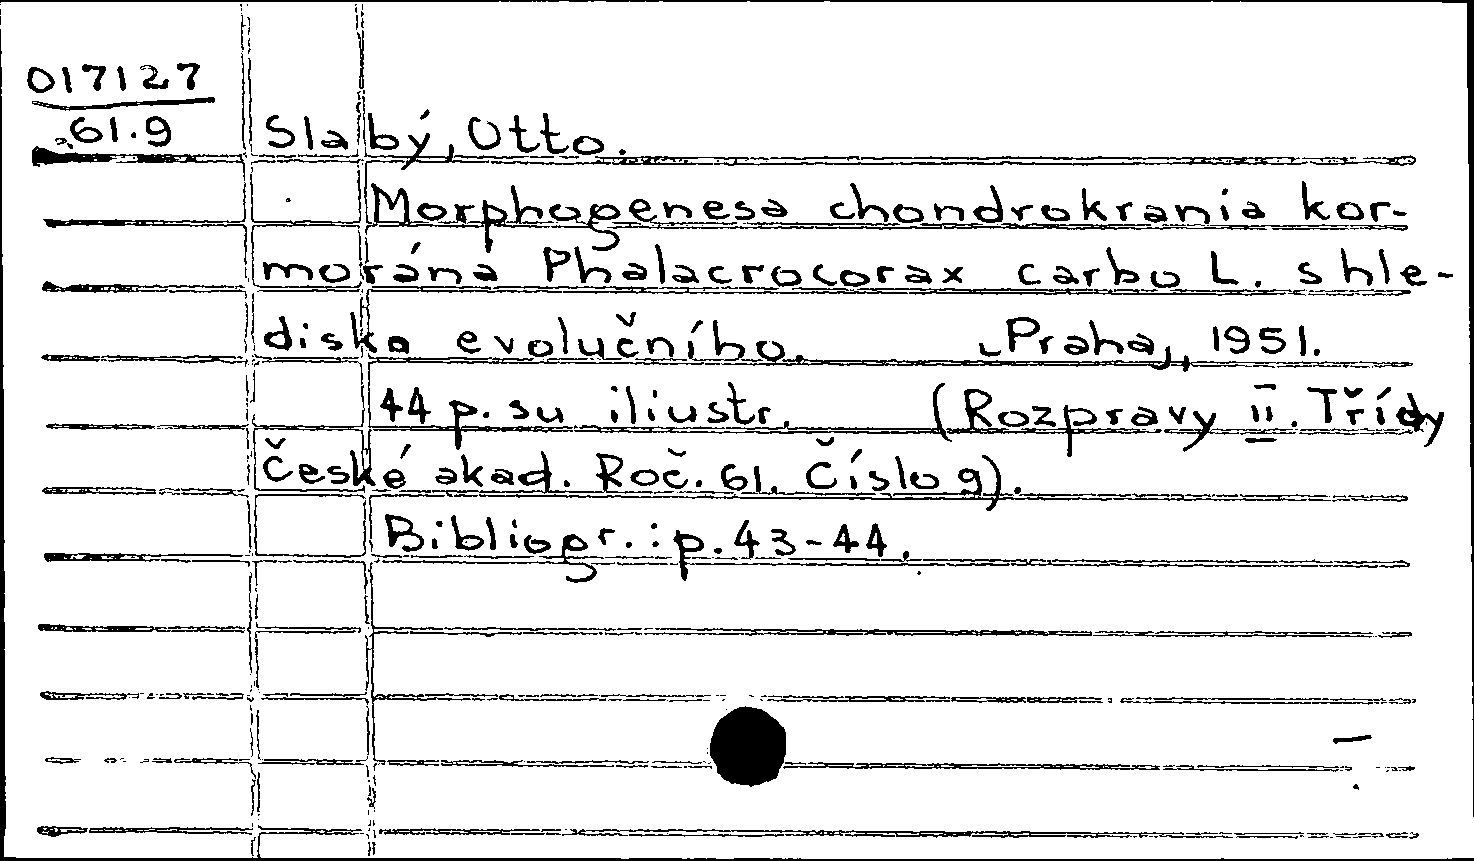 017127
61.9 Slabý, Otto.
Morphogenesa chondrokrania kor-
morána Phalacrocorax carbo L. s hle-
diska evolučního. [Praha], 1951.
44 p. su iliustr. (Rozpravy II. Třídy
České akad. Roč. 61. Číslo 9).
Bibliogr.: p. 43-44.